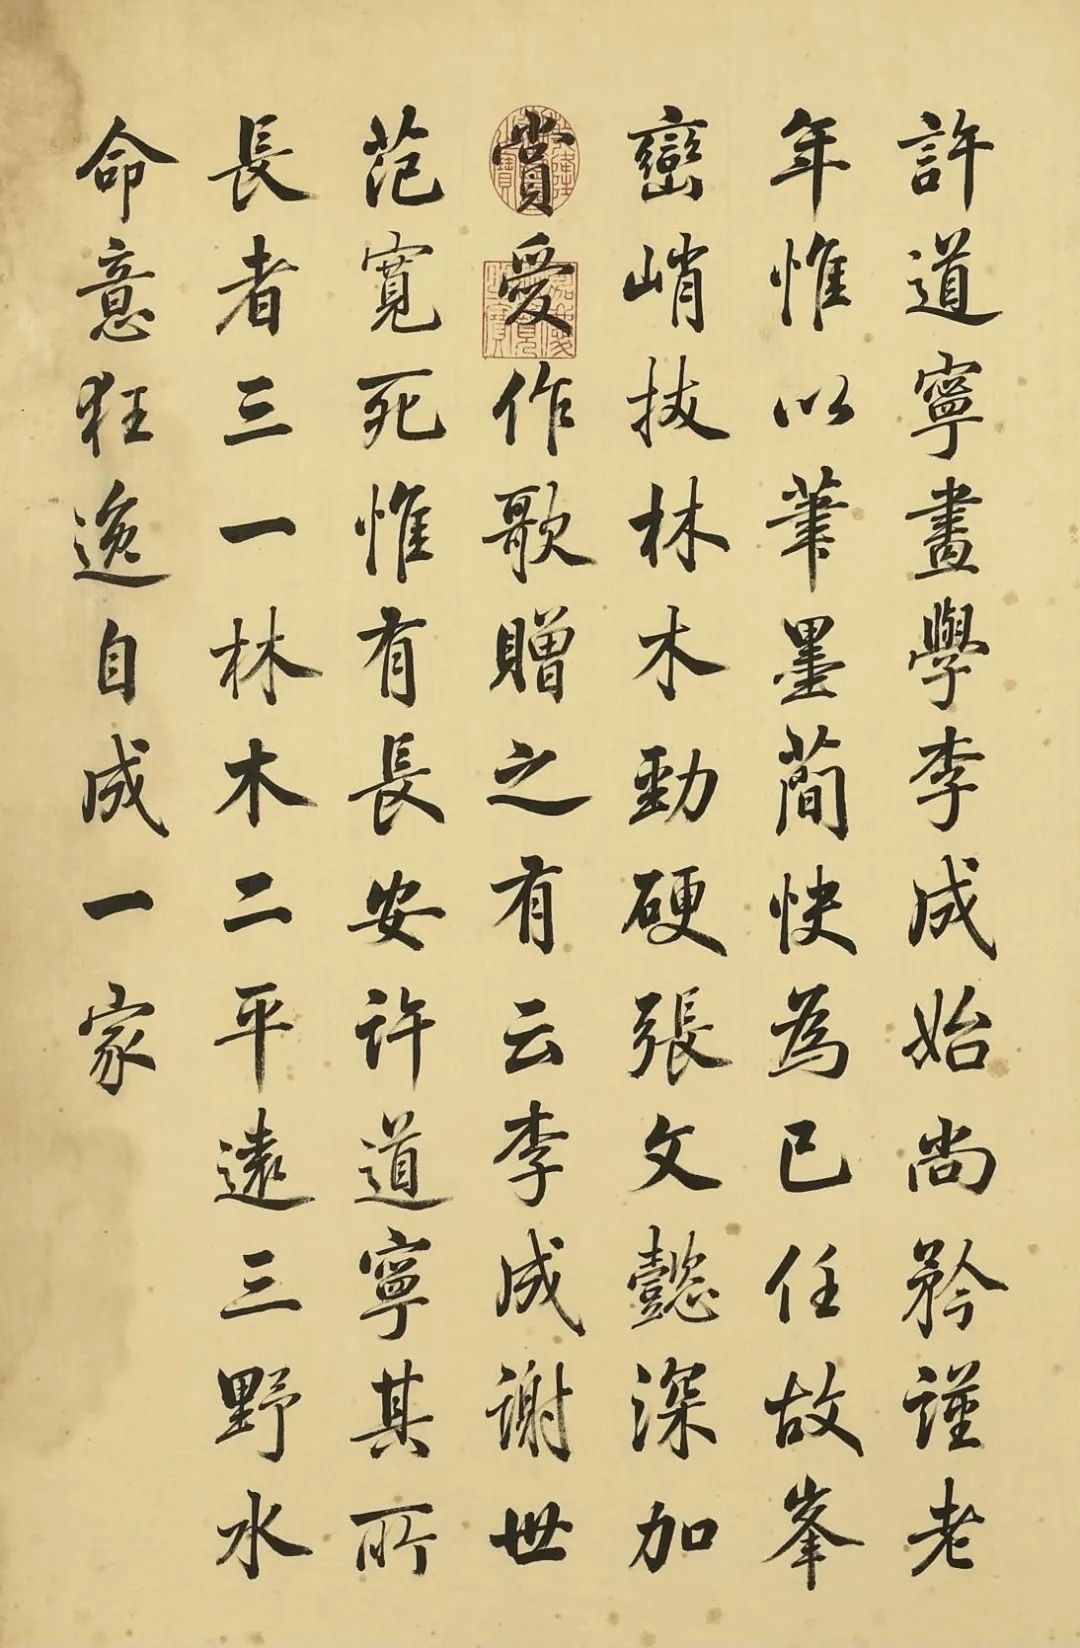 許道寧畫學李成始尚矜謹老
年惟以筆墨簡快為已任故峯
巒峭拔林木勁硬張文懿深加
賞愛作歌贈之有云李成謝世
范寬死惟有長安許道寧其所
長者三一林木二平遠三野水
命意狂逸自成一家